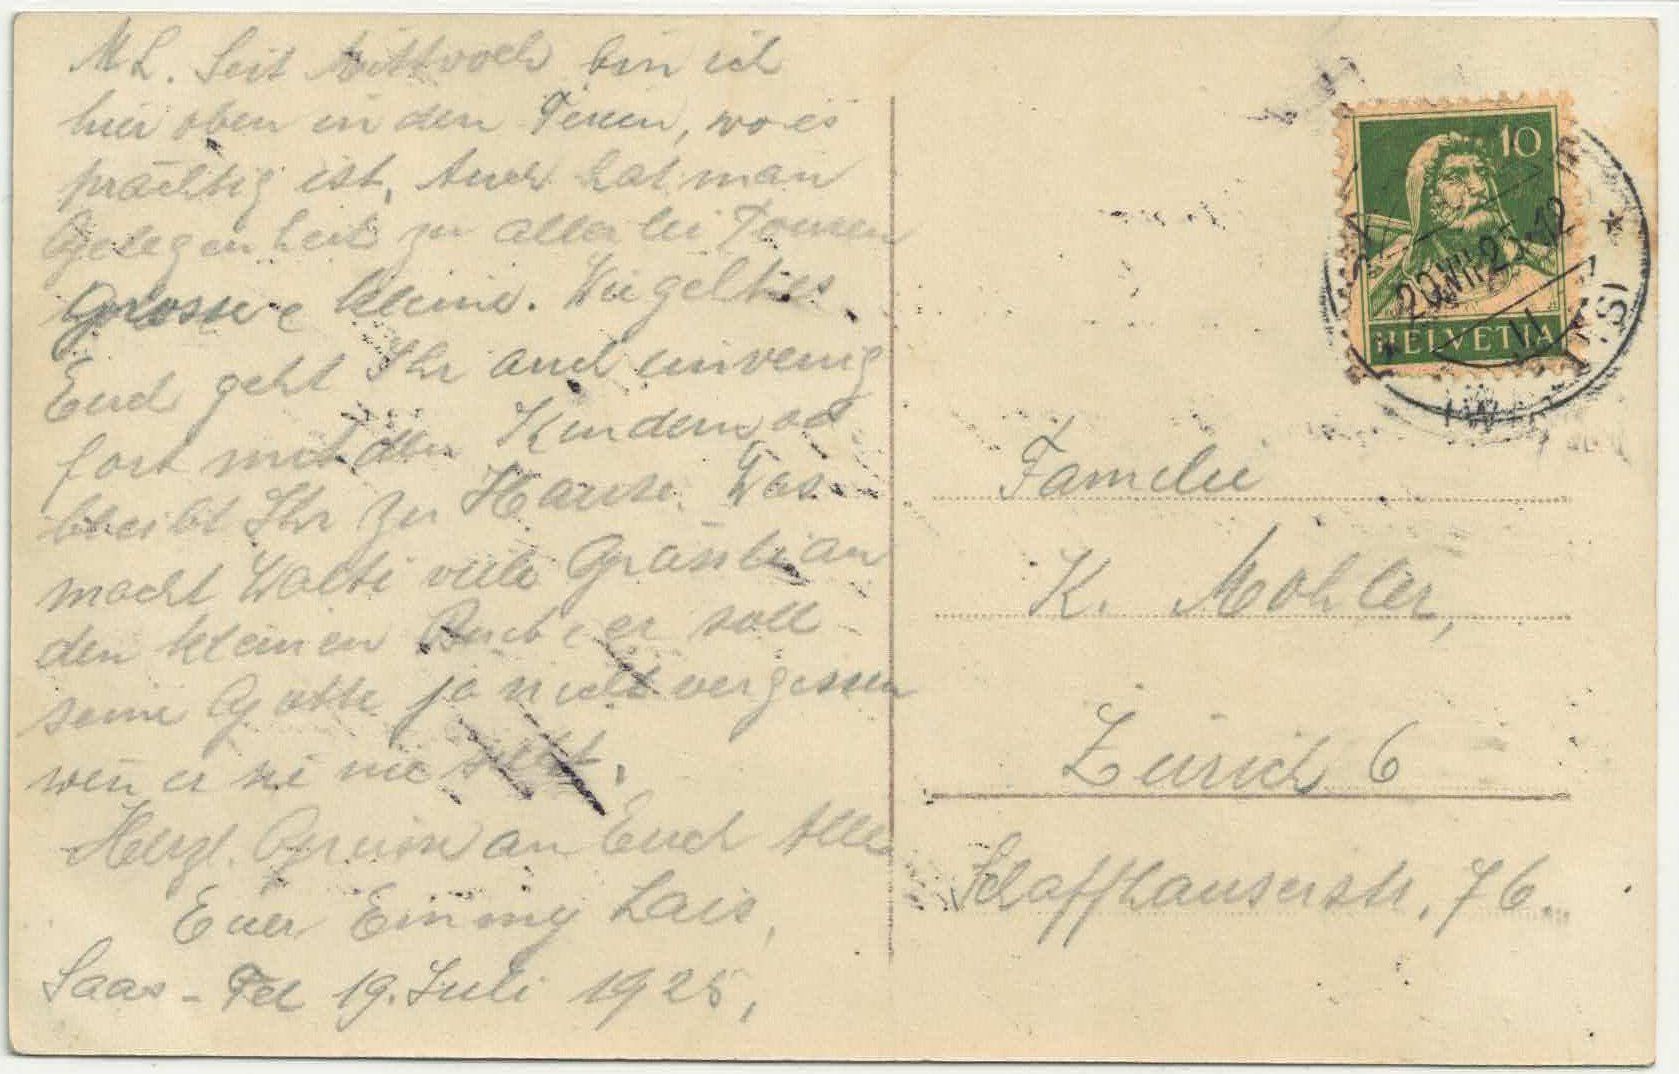 M L. Seit Mittwoch bin ich
hier oben in den Ferien, wo es
prächtig ist. Auch hat man
Gelegenheit zu allerlei Touren
Grosse e kleine. Wie geht es
Euch geht Ihr auch ein wenig
fort mit den Kindern od.
bleibt Ihr zu Hause. Was
macht Walti viele Grüssli an
den kleinen Bub e er soll
seine Gotte ja nicht vergessen
wen̄ er sie nie sieht.
Herzl. Grüsse an Euch Alle
Euer Emmy Lais,
Saas-Fee 19. Juli 1925,
10
HELVETIA
20.VII.25-12
Familie
K. Mohler,
Zürich 6
Schaffhauserstr. 76.